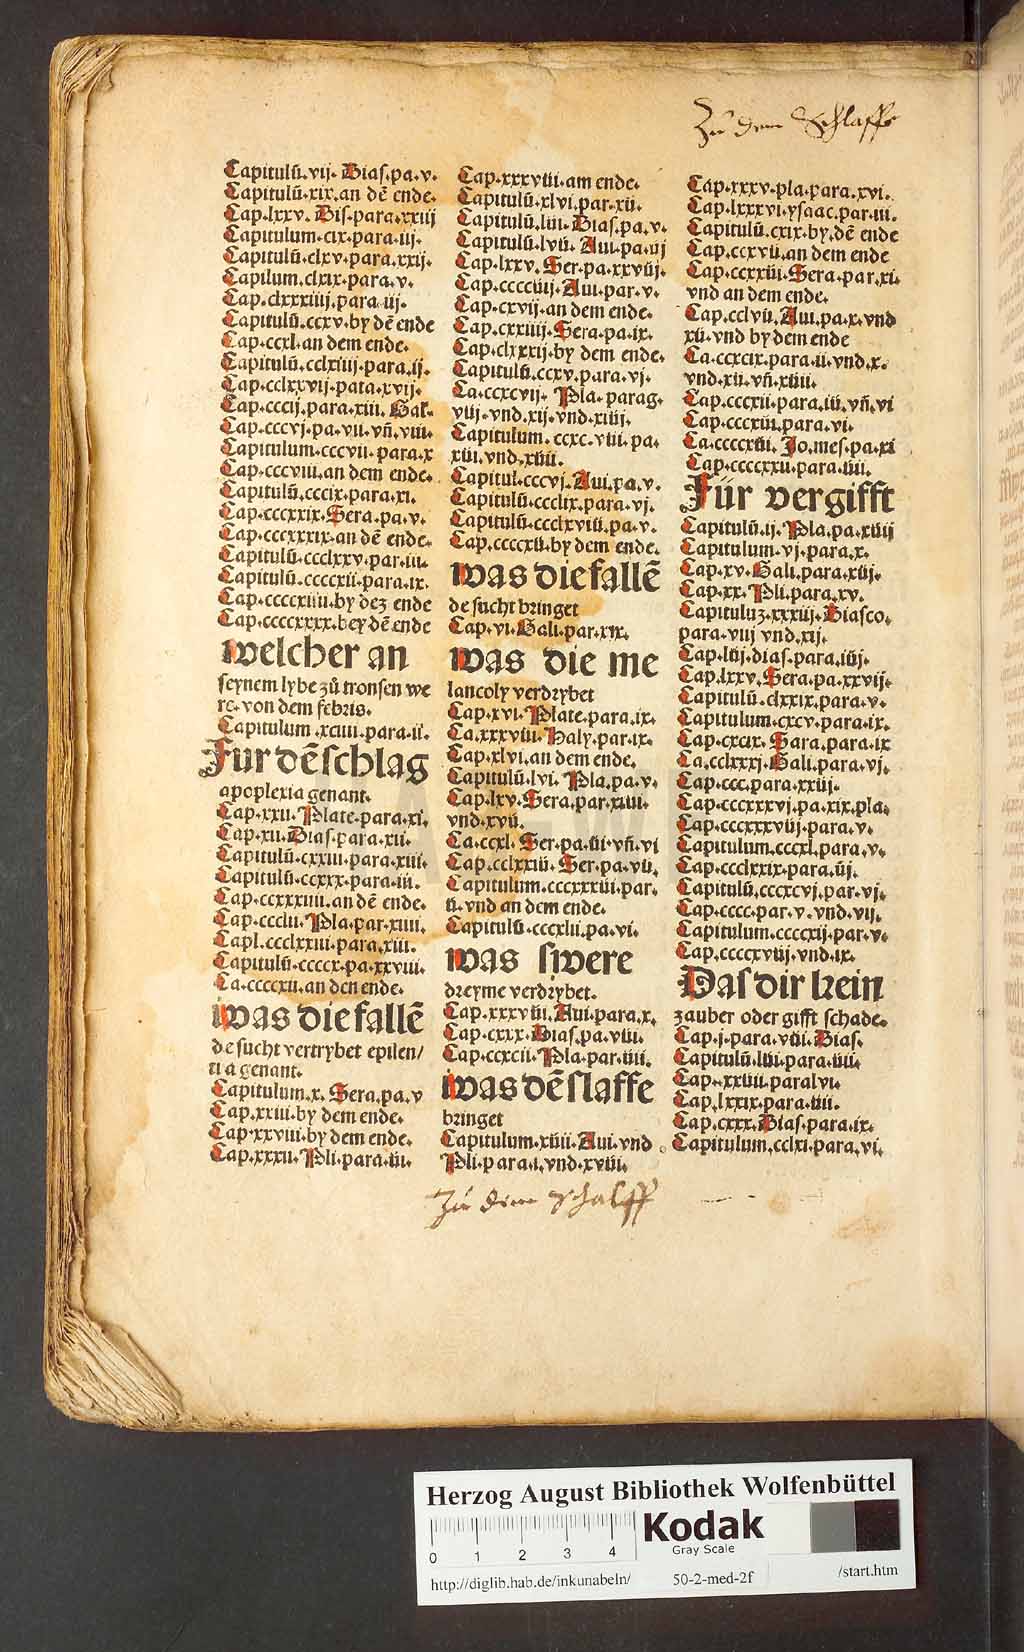 Zu dem Schlaffe
Capitulū.vij. Dias.pa.v.
Capitulū.xix.an dē ende.
Cap.lxxv. Dis.para.xxiij
Capitulum.cix.para.iij.
Capitulū.clxv.para.xxij.
Capilum.clxix.para.v.
Cap.clxxxiiij.para.iij.
Capitulū.ccxv.by dē ende
Cap.ccxl.an dem ende.
Capitulū.cclxiiij.para.ij.
Cap.cclxxvij.para.xvij.
Cap.cccij.para.xiii. Gal.
Cap.cccvj.pa.vii.vñ.viii.
Capitulum.cccvii.para.x
Cap.cccviii.an dem ende.
Capitulū.cccix.para.xi.
Cap.cccxxix.Sera.pa.v.
Cap.cccxxxix.an dē ende.
Capitulū.ccclxxv.par.iii.
Capitulū.ccccxii.para.ix.
Cap.ccccxiiii.by dez ende
Cap.ccccxxxx.bey dē ende
welcher an
seynem lybe zů tronsen we
re.von dem febris.
Capitulum.xciiii.para.ii.
Fur dē schlag
apoplexia genant.
Cap.xxii.Plate.para.xi.
Cap.xii.Dias.para.xii.
Capitulū.cxxiii.para.xiii.
Capitulū.ccxxx.para.iii.
Cap.ccxxxiiii.an dē ende.
Cap.cccliii.Pla.par.xiiii.
Capl.ccclxxiii.para.xiii.
Capitulū.ccccx.pa.xxviii.
Ca.ccccxii.an den ende.
was die fallē
de sucht vertrybet epilen/
tia genant.
Capitulum.x. Sera.pa.v
Cap.xxiii.by dem ende.
Cap.xxviii.by dem ende.
Cap.xxxii.Pli.para.iii.
Cap.xxxviii.am ende.
Capitulū.xlvi.par.xii.
Capitulū.liii.Dias.pa.v.
Capitulū.lvii. Aui.pa.iij
Cap.lxxv.Ser.pa.xxviij.
Cap.cccciiij.Aui.par.v.
Cap.cxvij.an dem ende.
Cap.cxxiiij.Sera.pa.ix.
Cap.clxxxij.by dem ende.
Capitulū.ccxv.para.vj.
Ca.ccxcvij. Pla.parag.
viij.vnd.xij.vnd.xiiij.
Capitulum.ccxc.viii.pa.
xiii.vnd.xiiii.
Capitul.cccvj.Aui.pa.v.
Capitulū.ccclix.para.vj.
Capitulū.ccclxviii.pa.v.
Cap.ccccxii.by dem ende.
was die fallē
de sucht bringet
Cap.vi.Gali.par.xix.
was die me
lancoly verdrybet
Cap.xvi.Plate.para.ix.
Ca.xxxviii.Haly.par.ix.
Cap.xlvi.an dem ende.
Capitulū.lvi. Pla.pa.v.
Cap.lxv.Sera.par.xiiii.
vnd.xvii.
Ca.ccxl. Ser.pa.iii.vñ.vi
Cap.cclxxiii. Ser.pa.vii.
Capitulum.cccxxxiii.par.
ii.vnd an dem ende.
Capitulū.cccxlii.pa.vi.
was swere
dreyme verdrybet.
Cap.xxxviii.Aui.para.x.
Cap.cxxx.Dias.pa.viii.
Cap.ccxcii.Pla.par.iiii.
was dē slaffe
bringet
Capitulum.xiiii.Aui.vnd
Pli.para.i.vnd.xviii.
Cap.xxxv.pla.para.xvi.
Cap.lxxxvi.ysaac.par.iii.
Capitulū.cxix.by.dē ende
Cap.ccxvii.an dem ende
Cap.ccxxiii.Sera.par.xi.
vnd an dem ende.
Cap.cclvii.Aui.pa.x.vnd
xii.vnd by dem ende
Ca.ccxcix.para.ii.vnd.x.
vnd.xii.vñ.xiiii.
Cap.cccxii.para.iii.vñ.vi
Cap.cccxiii.para.vi.
Ca.ccccxiii. Jo.mes.pa.xi
Cap.ccccxxii.para.iiii.
Für vergifft
Capitulū.ij.Pla.pa.xiiij
Capitulum.vj.para.x.
Cap.xv.Gali.para.xiij.
Cap.xx.Pli.para.xv.
Capituluz.xxxiij.Diasco.
para.viij vnd.xij.
Cap.liij.dias.para.iiij.
Cap.lxxv.Sera.pa.xxvij.
Capitulū.clxxix.para.v.
Capitulum.cxcv.para.ix.
Cap.cxcix.Sara.para.ix
Ca.cclxxxj.Gali.para.vj.
Cap.ccc.para.xxiij.
Cap.cccxxxvj.pa.xix.pla.
Cap.cccxxxviij.para.v.
Capitulum.cccxl.para.v.
Cap.ccclxxix.para.iij.
Capitulū.cccxcvj.par.vj.
Cap.cccc.par.v.vnd.vij.
Capitulum.ccccxij.par.v.
Cap.ccccxviij.vnd.ix.
Das dir kein
zauber oder gifft schade.
Cap.j.para.viii.Dias.
Capitulū.liii.para.iiii.
Cap.xxviii.paralvi.
Cap.lxxix.para.iiii.
Cap.cxxx.Dias.para.ix.
Capitulum.cclxi.para.vi.
Zu dem Schalff
Herzog August Bibliothek Wolfenbüttel
0 1 2 3 4
Kodak
Gray Scale
http://diglib.hab.de/inkunabeln/ 50-2-med-2f /start.htm